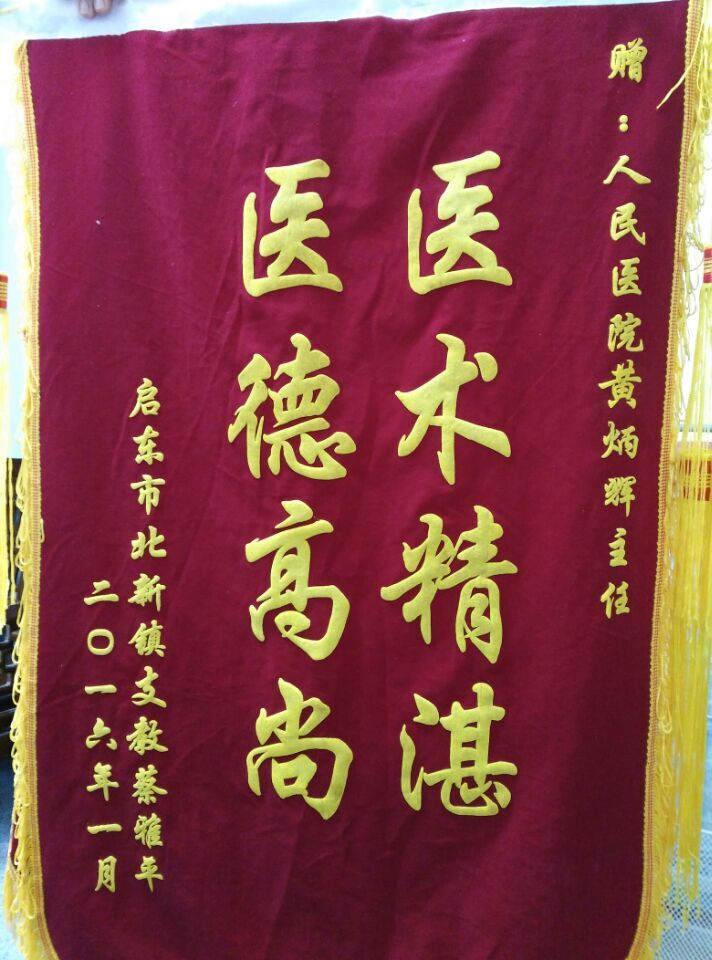 赠：人民医院黄炳辉主任
医术精湛
医德高尚
启东市北新镇支教蔡雅平
二〇一六年一月